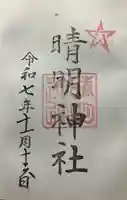 晴明神社
令和七年十一月十六日